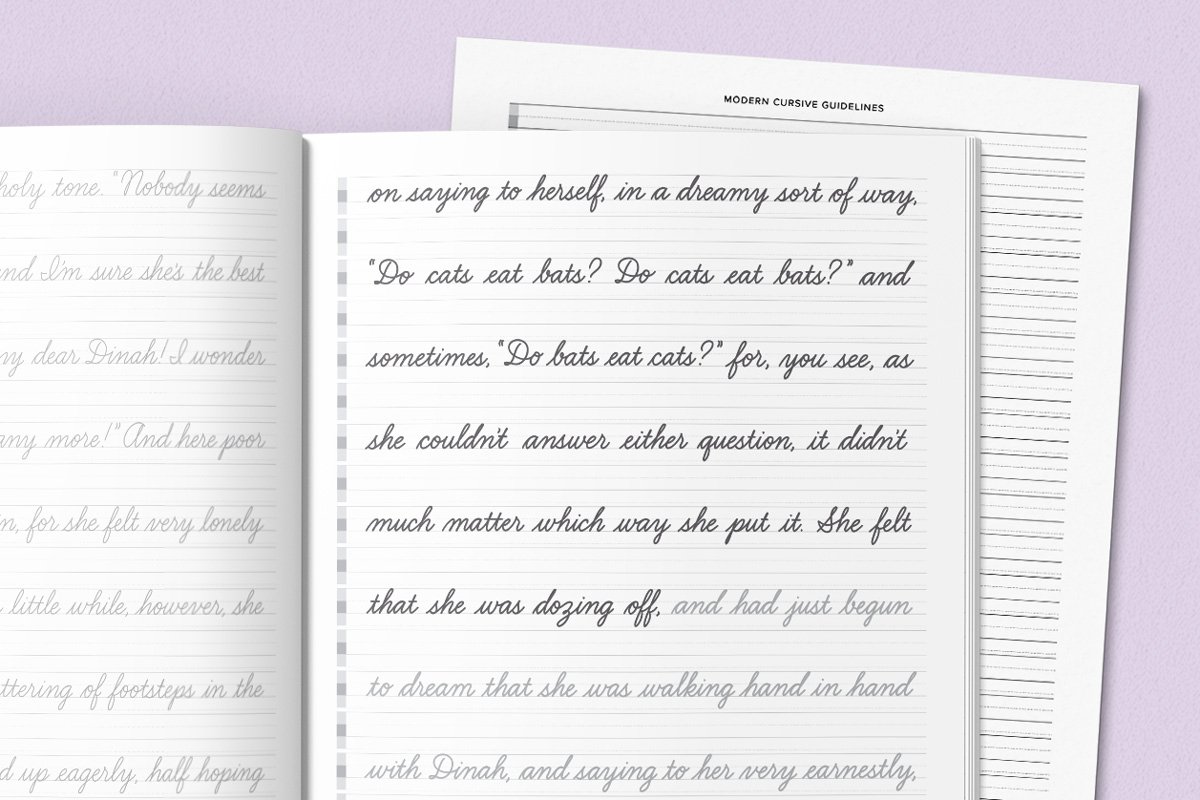 MODERN CURSIVE GUIDELINES
holy tone. "Nobody seems
and I'm sure she's the best
my dear Dinah! I wonder
any more!" And here poor
in, for she felt very lonely
little while, however, she
ttering of footsteps in the
d up eagerly, half hoping
on saying to herself, in a dreamy sort of way,
"Do cats eat bats? Do cats eat bats?" and
sometimes, "Do bats eat cats?" for, you see, as
she couldn't answer either question, it didn't
much matter which way she put it. She felt
that she was dozing off, and had just begun
to dream that she was walking hand in hand
with Dinah, and saying to her very earnestly,